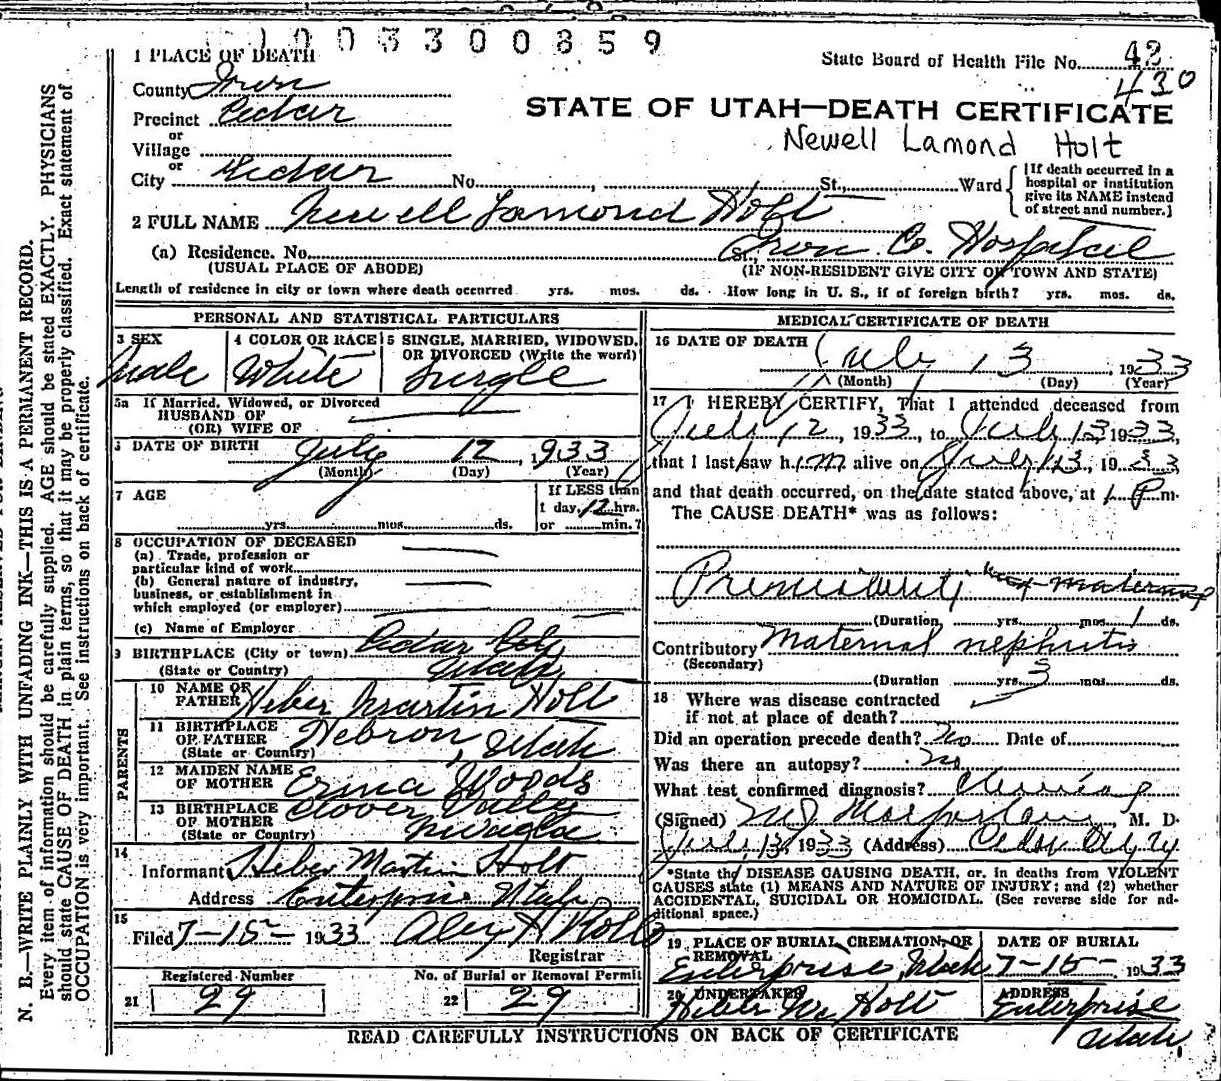 1003300859
1 PLACE OF DEATH
State Board of Health File No. 42
430
County Iron
STATE OF UTAH—DEATH CERTIFICATE
Precinct Cedar
Newell Lamond Holt
or
Village
or
City Cedar No. , St., Ward
[If death occurred in a hospital or institution give its NAME instead of street and number.]
2 FULL NAME Newell Lamond Holt
(a) Residence. No. St., Iron Co. Hospital
(USUAL PLACE OF ABODE) (IF NON-RESIDENT GIVE CITY OR TOWN AND STATE)
Length of residence in city or town where death occurred yrs. mos. ds. How long in U. S., if of foreign birth? yrs. mos. ds.
PERSONAL AND STATISTICAL PARTICULARS
3 SEX
male
4 COLOR OR RACE
White
5 SINGLE, MARRIED, WIDOWED, OR DIVORCED (Write the word)
Single
5a If Married, Widowed, or Divorced
HUSBAND OF
(OR) WIFE OF
6 DATE OF BIRTH July 12, 1933
(Month) (Day) (Year)
7 AGE
yrs. mos. ds.
If LESS than
1 day, 12 hrs.
or min.?
8 OCCUPATION OF DECEASED
(a) Trade, profession or
particular kind of work
(b) General nature of industry,
business, or establishment in
which employed (or employer)
(c) Name of Employer
9 BIRTHPLACE (City or town) Cedar City
(State or Country) Utah
PARENTS
10 NAME OF FATHER Heber Martin Holt
11 BIRTHPLACE OF FATHER Hebron, Utah
(State or Country)
12 MAIDEN NAME OF MOTHER Erma Woods
13 BIRTHPLACE OF MOTHER Clover Valley
(State or Country) Nevada
14
Informant Heber Martin Holt
Address Enterprise Utah
15
Filed 7-15- 1933
Registrar
Registered Number
21 29
No. of Burial or Removal Permit
22 29
MEDICAL CERTIFICATE OF DEATH
16 DATE OF DEATH July 13, 1933
(Month) (Day) (Year)
17 I HEREBY CERTIFY, That I attended deceased from
July 12, 1933, to July 13 1933,
that I last saw him alive on July 13, 1933
and that death occurred, on the date stated above, at 1 P m.
The CAUSE DEATH* was as follows:
Prematurity
(Duration yrs. mos. 1 ds.
Contributory Maternal nephritis
(Secondary)
(Duration yrs. 3 mos. ds.
18 Where was disease contracted
if not at place of death?
Did an operation precede death? No Date of
Was there an autopsy? No
What test confirmed diagnosis? Clinical
(Signed) M J Macfarlane, M. D.
July 13, 1933 (Address) Cedar City
*State the DISEASE CAUSING DEATH, or, in deaths from VIOLENT
CAUSES state (1) MEANS AND NATURE OF INJURY; and (2) whether
ACCIDENTAL, SUICIDAL OR HOMICIDAL. (See reverse side for ad-
ditional space.)
19 PLACE OF BURIAL, CREMATION, OR REMOVAL
Enterprise, Utah
DATE OF BURIAL
7-15- 1933
20 UNDERTAKER
Heber M. Holt
ADDRESS
Enterprise
Utah
READ CAREFULLY INSTRUCTIONS ON BACK OF CERTIFICATE
N. B.—WRITE PLAINLY WITH UNFADING INK—THIS IS A PERMANENT RECORD.
Every item of information should be carefully supplied. AGE should be stated EXACTLY. PHYSICIANS
should state CAUSE OF DEATH in plain terms, so that it may be properly classified. Exact statement of
OCCUPATION is very important. See instructions on back of certificate.